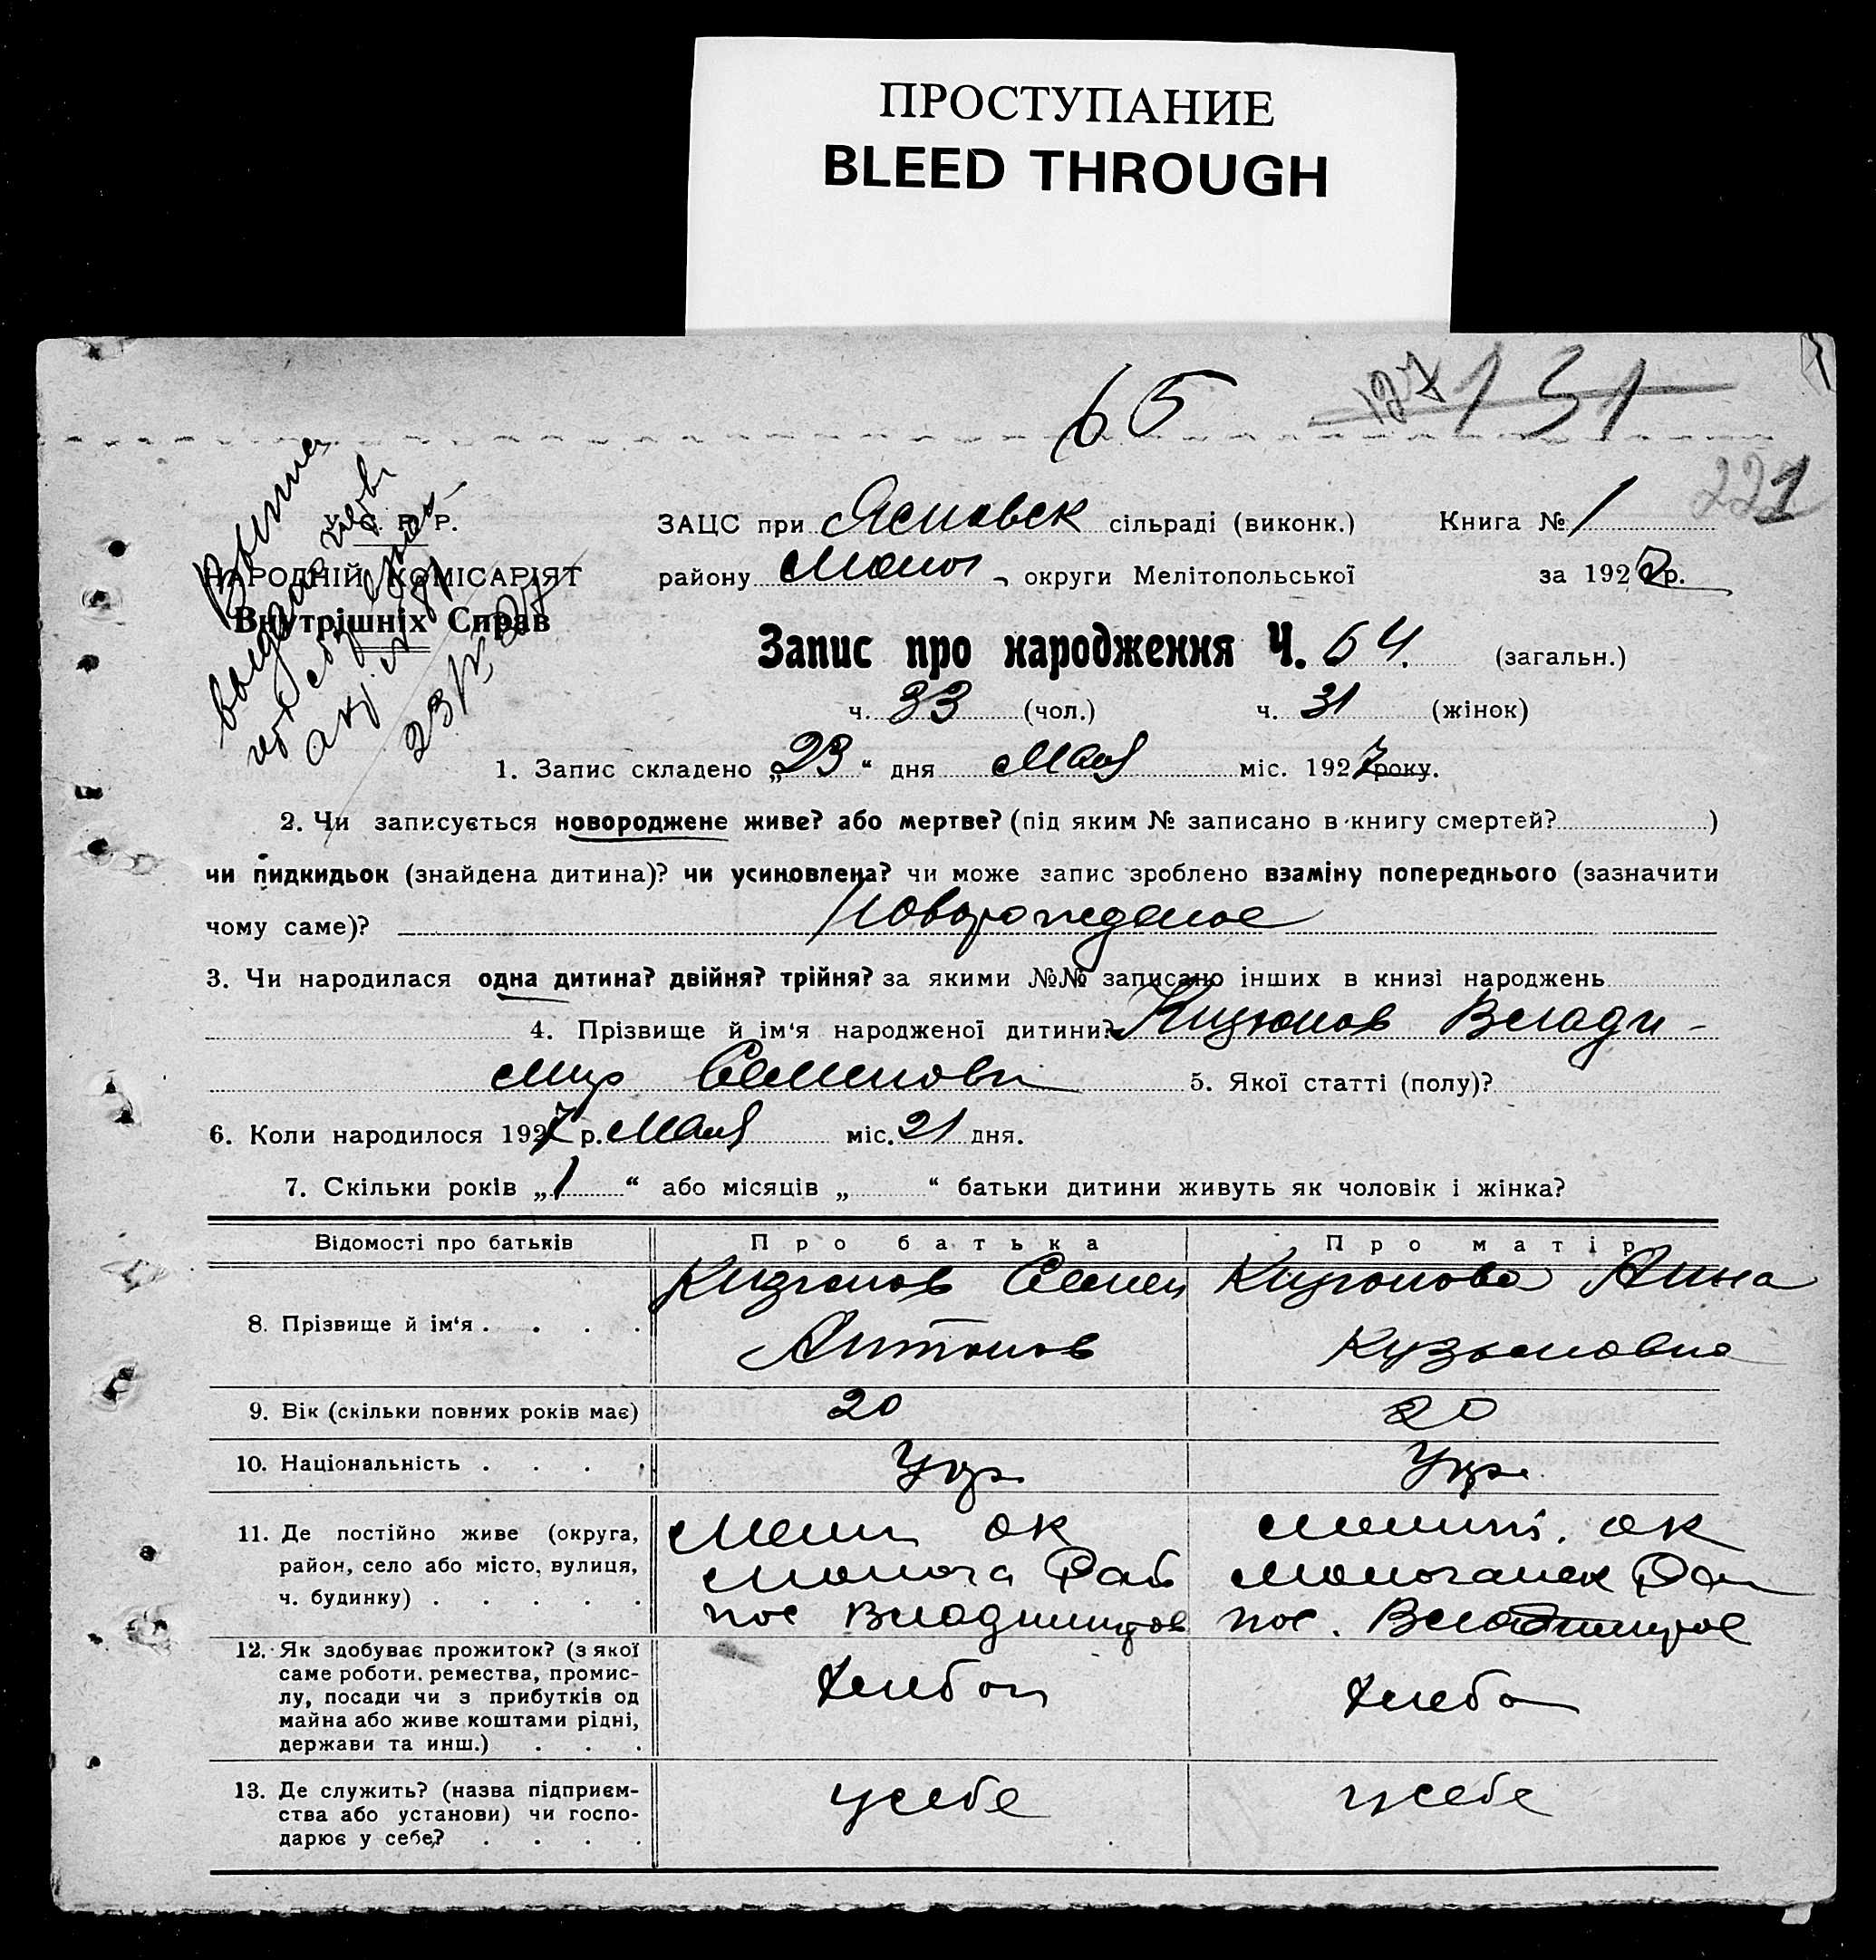 ПРОСТУПАНИЕ
BLEED THROUGH
65
127 131
221
У. С. Р. Р.
НАРОДНІЙ КОМІСАРІЯТ
Внутрішніх Справ
23/V 27
ЗАЦС при сільраді (виконк.) Книга № 1
району округи Мелітопольської за 1927 р.
Запис про народження Ч. 64. (загальн.)
ч. 33 (чол.) ч. 31 (жінок)
1. Запис складено „23“ дня Мая міс. 1927 року.
2. Чи записується новороджене живе? або мертве? (під яким № записано в книгу смертей? )
чи підкидьок (знайдена дитина)? чи усиновлена? чи може запис зроблено взаміну попереднього (зазначити
чому саме)? Новорожденое
3. Чи народилася одна дитина? двійня? трійня? за якими №№ записано інших в книзі народжень
4. Прізвище й ім‘я народженої дитини? Влади-
мир 5. Якої статті (полу)?
6. Коли народилося 1927 р. Мая міс. 21 дня.
7. Скільки років „1“ або місяців „ “ батьки дитини живуть як чоловік і жінка?
Відомості про батьків Про батька Про матір
8. Прізвище й ім‘я Семен Анна
Антонов Кузьмовна
9. Вік (скільки повних років має) 20 20
10. Національність Укр. Укр.
11. Де постійно живе (округа, ок ок
район, село або місто, вулиця, Рай
ч. будинку) пос пос.
12. Як здобуває прожиток? (з якої
саме роботи, ремества, промис-
лу, посади чи з прибутків од Хлебоп Хлебоп
майна або живе коштами рідні,
держави та инш.)
13. Де служить? (назва підприєм- у себе у себе
ства або установи) чи госпо-
дарює у себе?